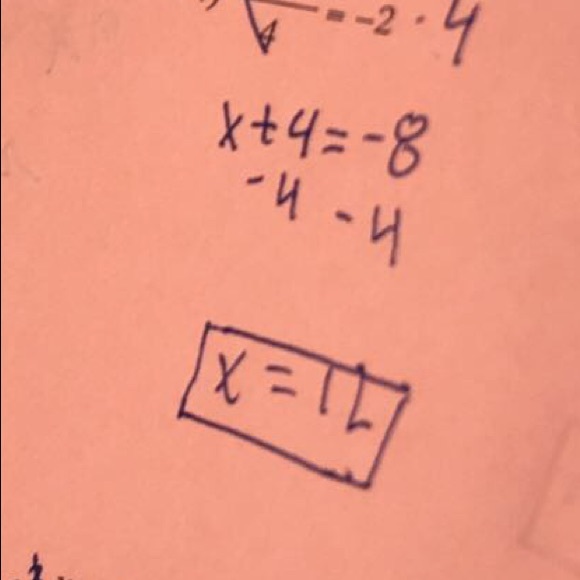 4 = -2 · 4
x+4=-8
-4 -4
x = 12